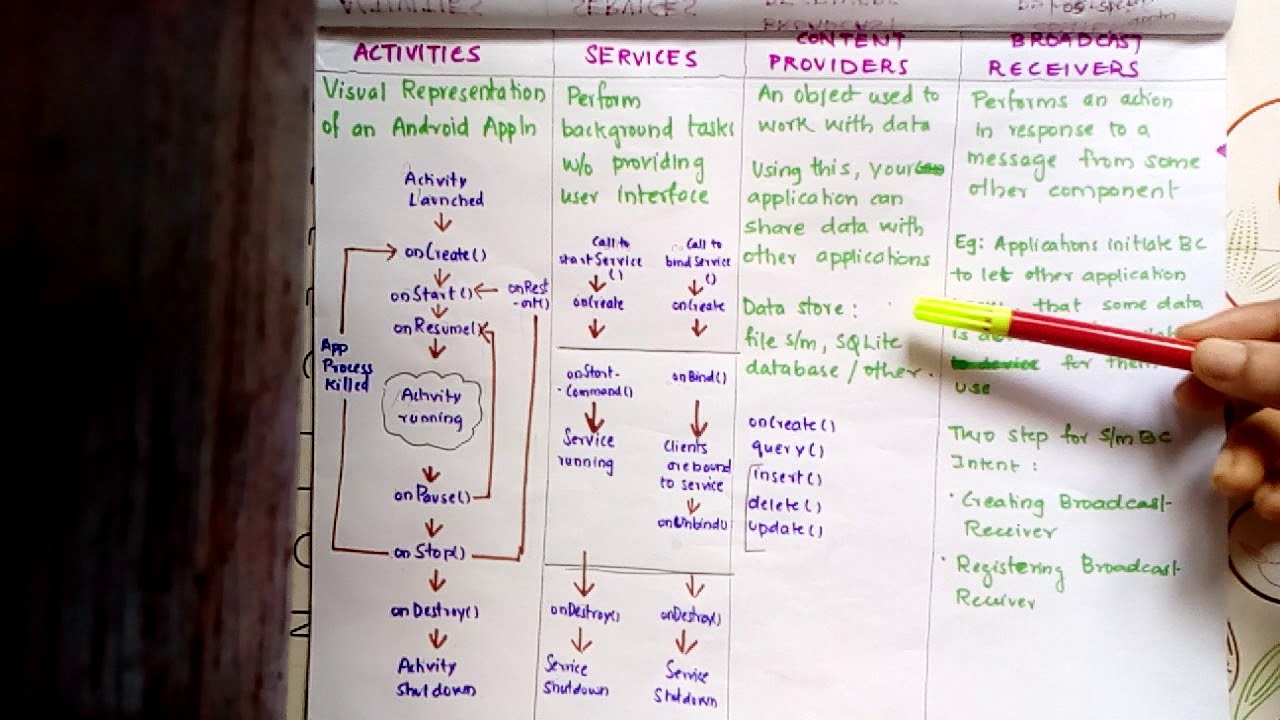 ACTIVITIES
Visual Representation
of an Android AppIn
Activity
Launched
onCreate()
onStart()
onRest
-art()
onResume(
App
Process
killed
Activity
running
onPause()
onStop()
onDestroy()
Activity
Shutdown
SERVICES
Perform
background tasks
w/o providing
user interface
Call to
startService
()
onCreate
onStart-
-Command()
Service
running
onDestroy()
Service
Shutdown
Call to
bind Service
()
onCreate
onBind()
Clients
are bound
to service
onUnbind()
onDestroy()
Service
Shutdown
CONTENT
PROVIDERS
An object used to
work with data
Using this, your
application can
share data with
other applications
Data store:
file s/m, SQLite
database / other.
onCreate()
query()
insert()
delete()
update()
BROADCAST
RECEIVERS
Performs an action
in response to a
message from some
other component
Eg: Applications initiate BC
to let other application
that some data
is
to device for them
use
Two step for s/m BC
Intent:
· Creating Broadcast-
Receiver
· Registering Broadcast-
Receiver